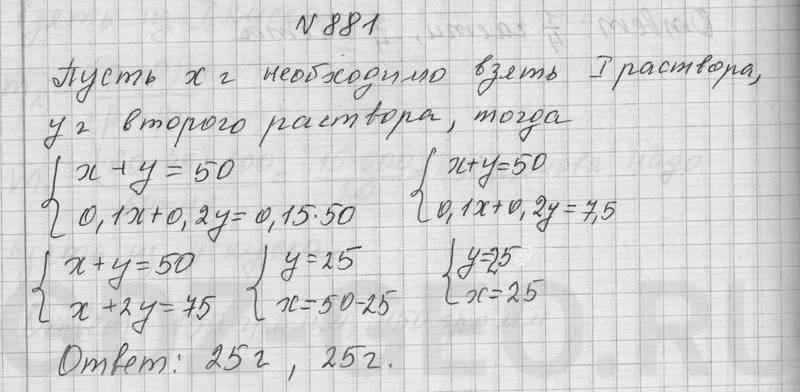 № 881
Пусть x г необходимо взять I раствора,
y г второго раствора, тогда
{ x + y = 50
0,1x + 0,2y = 0,15·50
{ x + y = 50
0,1x + 0,2y = 7,5
{ x + y = 50
x + 2y = 75
{ y = 25
x = 50 - 25
{ y = 25
x = 25
Ответ: 25 г, 25 г.